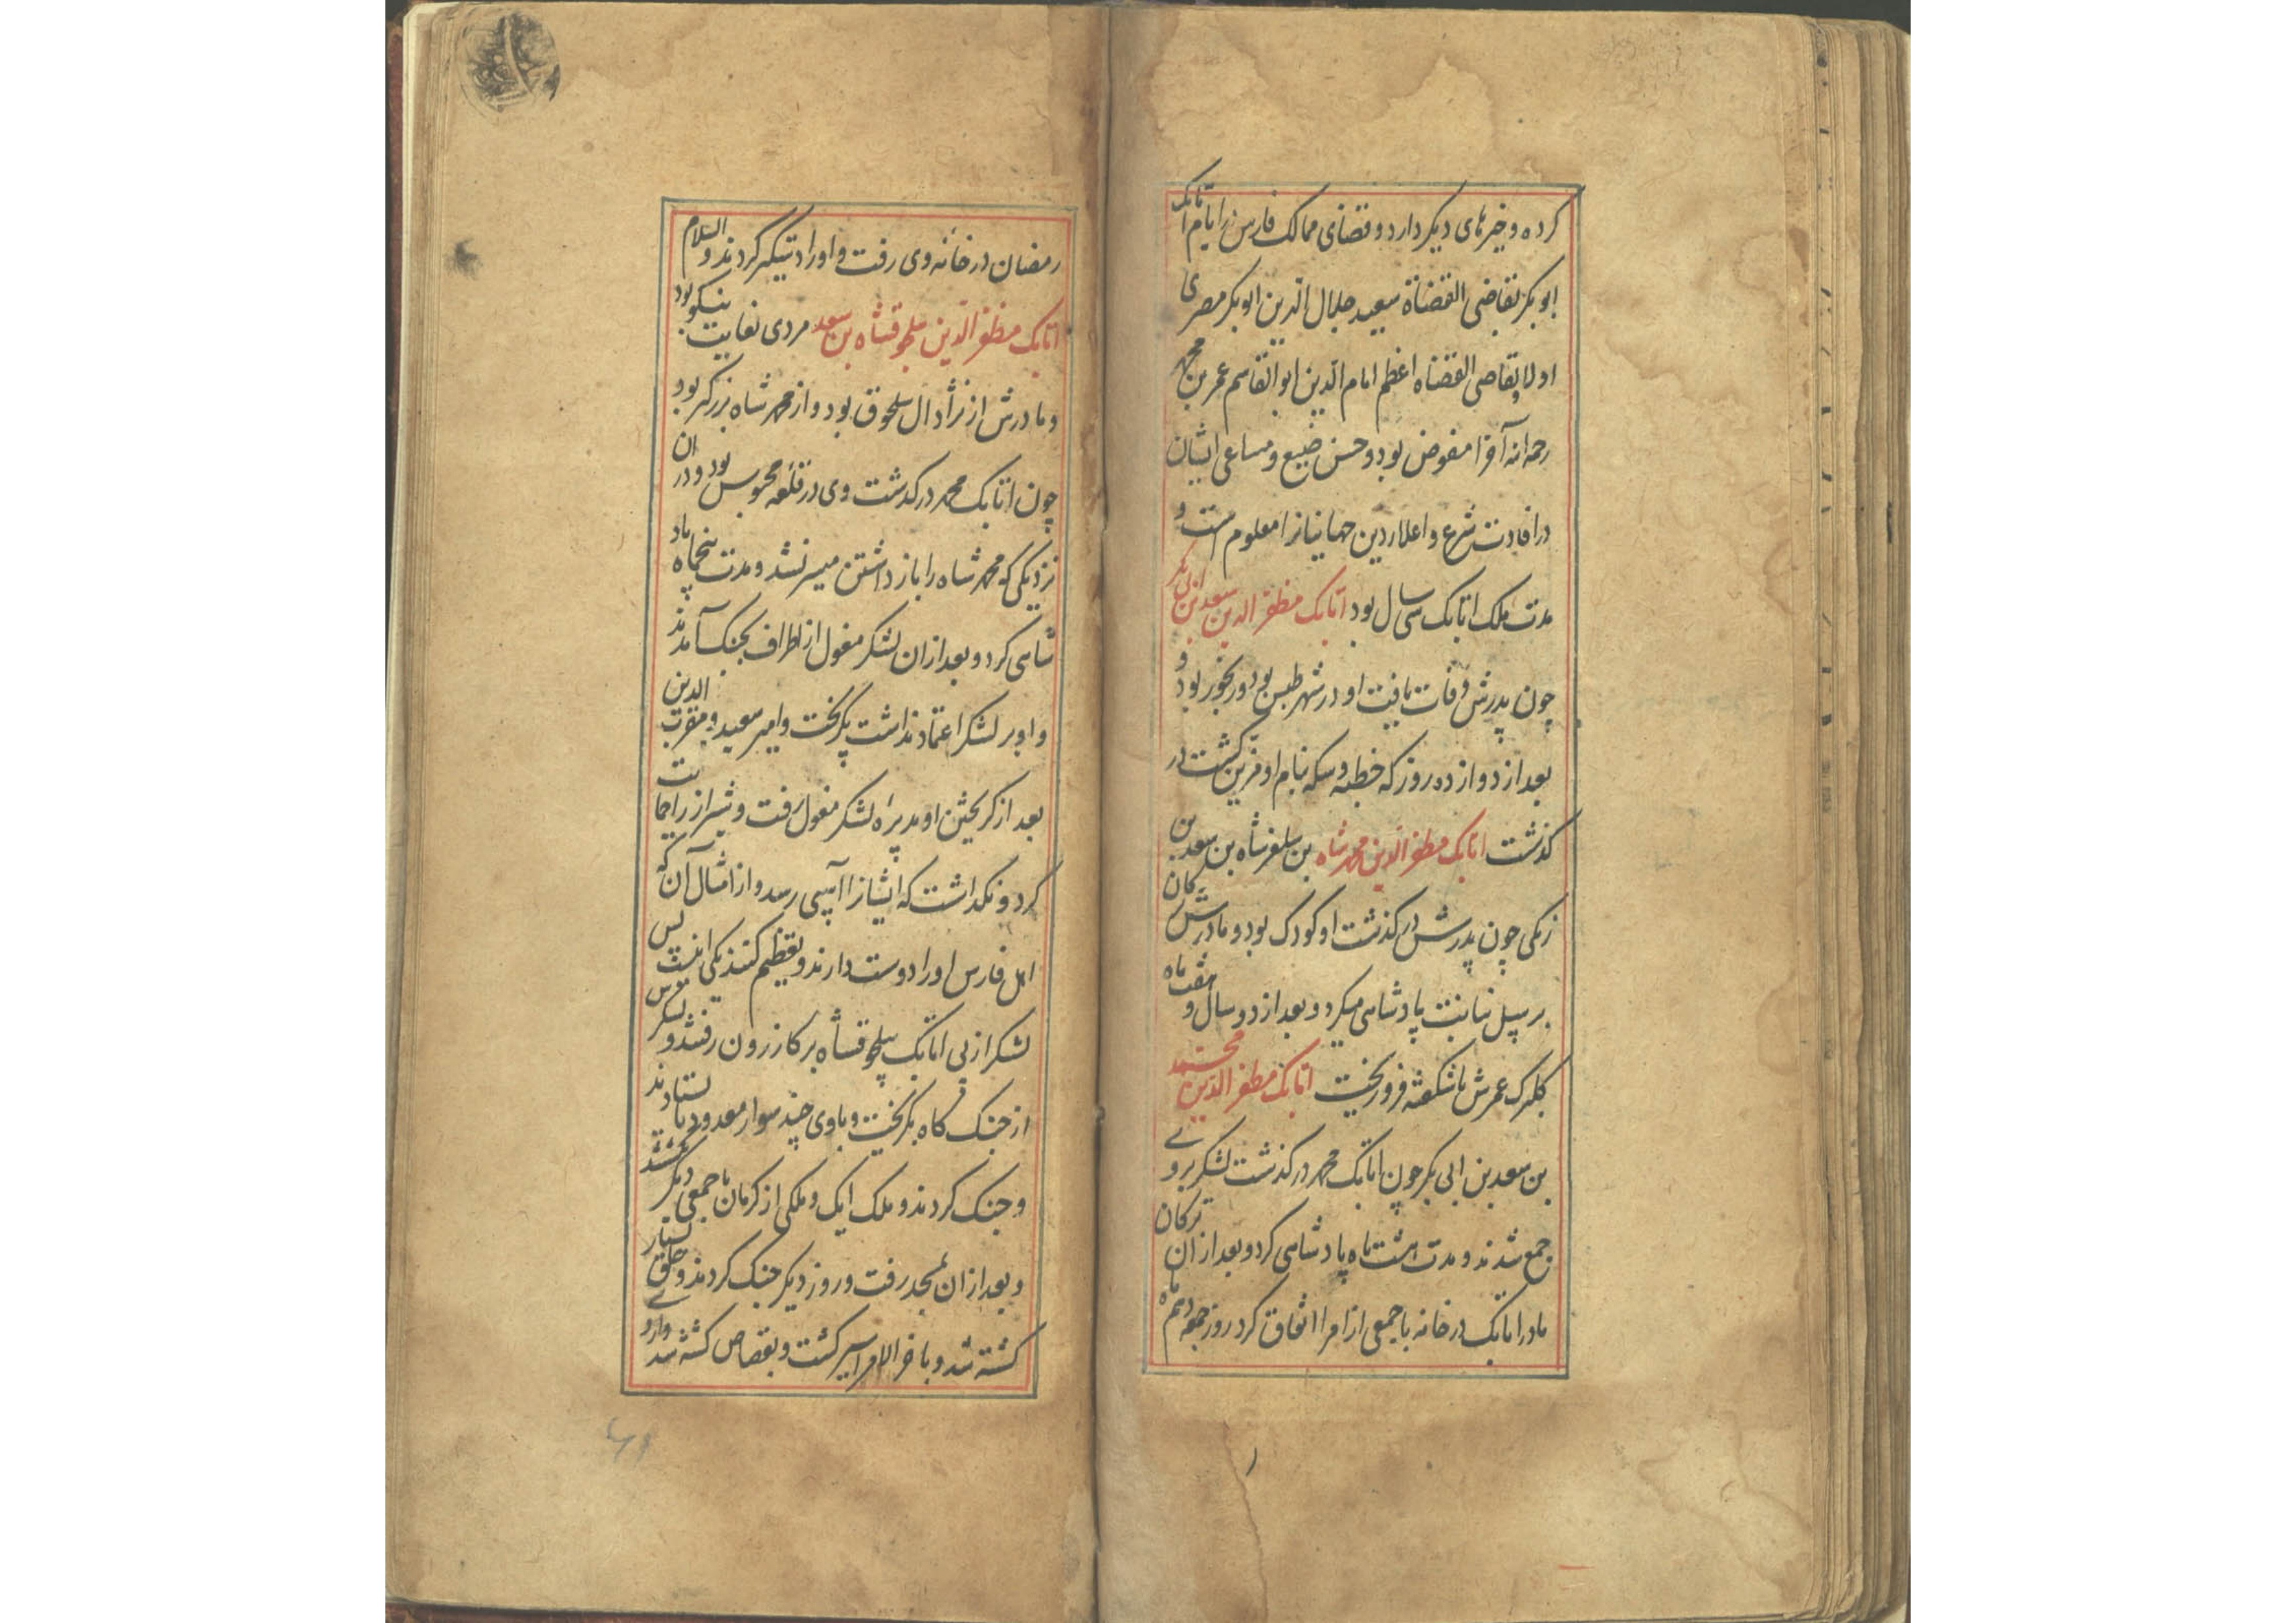 کرده و خیرهای دیگر دارد و قضای ممالک فارس در ایام اتابک
ابوبکر بقاضی القضاة سعید جلال الدین ابوبکر مصری
اولا و بقاضی القضاه اعظم امام الدین ابو القاسم عمر بن محمد
رحمه الله آخرا مفوض بود و حسن صنیع و مساعی ایشان
در افادت شرع و اعلاء دین جهانیانرا معلوم است و
مدت ملک اتابک سی سال بود اتابک مظفر الدین سعد بن ابی بکر
چون پدرش وفات یافت او در شهر طبس بود و رنجور بود و
بعد از دوازده روز که خطبه و سکه بنام او مزین گشت در
گذشت اتابک مظفر الدین محمد شاه بن سلغر شاه بن سعد بن
زنگی چون پدرش در گذشت او کودک بود و مادرش ترکان
بر سبیل نیابت پادشاهی میکرد و بعد از دو سال و هفت ماه
گلبرگ عمرش ناشکفته فرو ریخت اتابک مظفر الدین محمد
بن سعد بن ابی بکر چون اتابک محمد در گذشت لشکر بروی
جمع شدند و مدت هشت ماه پادشاهی کرد و بعد از ان ترکان
مادر اتابک در خانه با جمعی از امرا اتفاق کرد روز جمعه دهم ماه
رمضان در خانه وی رفت و او را دستگیر کردند و السلام
اتابک مظفر الدین سلجوقشاه بن سعد مردی بغایت نیکو بود
و مادرش از نژاد ال سلجوق بود و از محمد شاه بزرگتر بود و
چون اتابک محمد در گذشت وی در قلعه محبوس بود و در ان
نزدیکی که محمد شاه را باز داشتن میسر نشد و مدت پنجماه پاد
شاهی کرد و بعد از ان لشکر مغول از اطراف بجنگ آمدند
و او بر لشکر اعتماد نداشت بگریخت و امیر سعید و مقرب الدین
بعد از گریختن او بدیراه لشکر مغول رفت و شیراز را حمایت
کرد و نگذاشت که ایشانرا آسیبی رسد و از امثال آن که
اهل فارس او را دوست دارند و تعظیم کنند یکی اینست پس
لشکر از پی اتابک سلجوقشاه بر کازرون رفتند و لشکرش
از جنگ گاه بگریخت و با وی چند سوار معدود بایستادند
و جنگ کردند و ملک ایک و ملکی از کرمان با جمعی دیگر کشته شد
و بعد از ان بمسجد رفت و روز دیگر جنگ کردند و خلق بسیار
کشته شد و باخر الامر اسیر گشت و بقصاص کشته شد